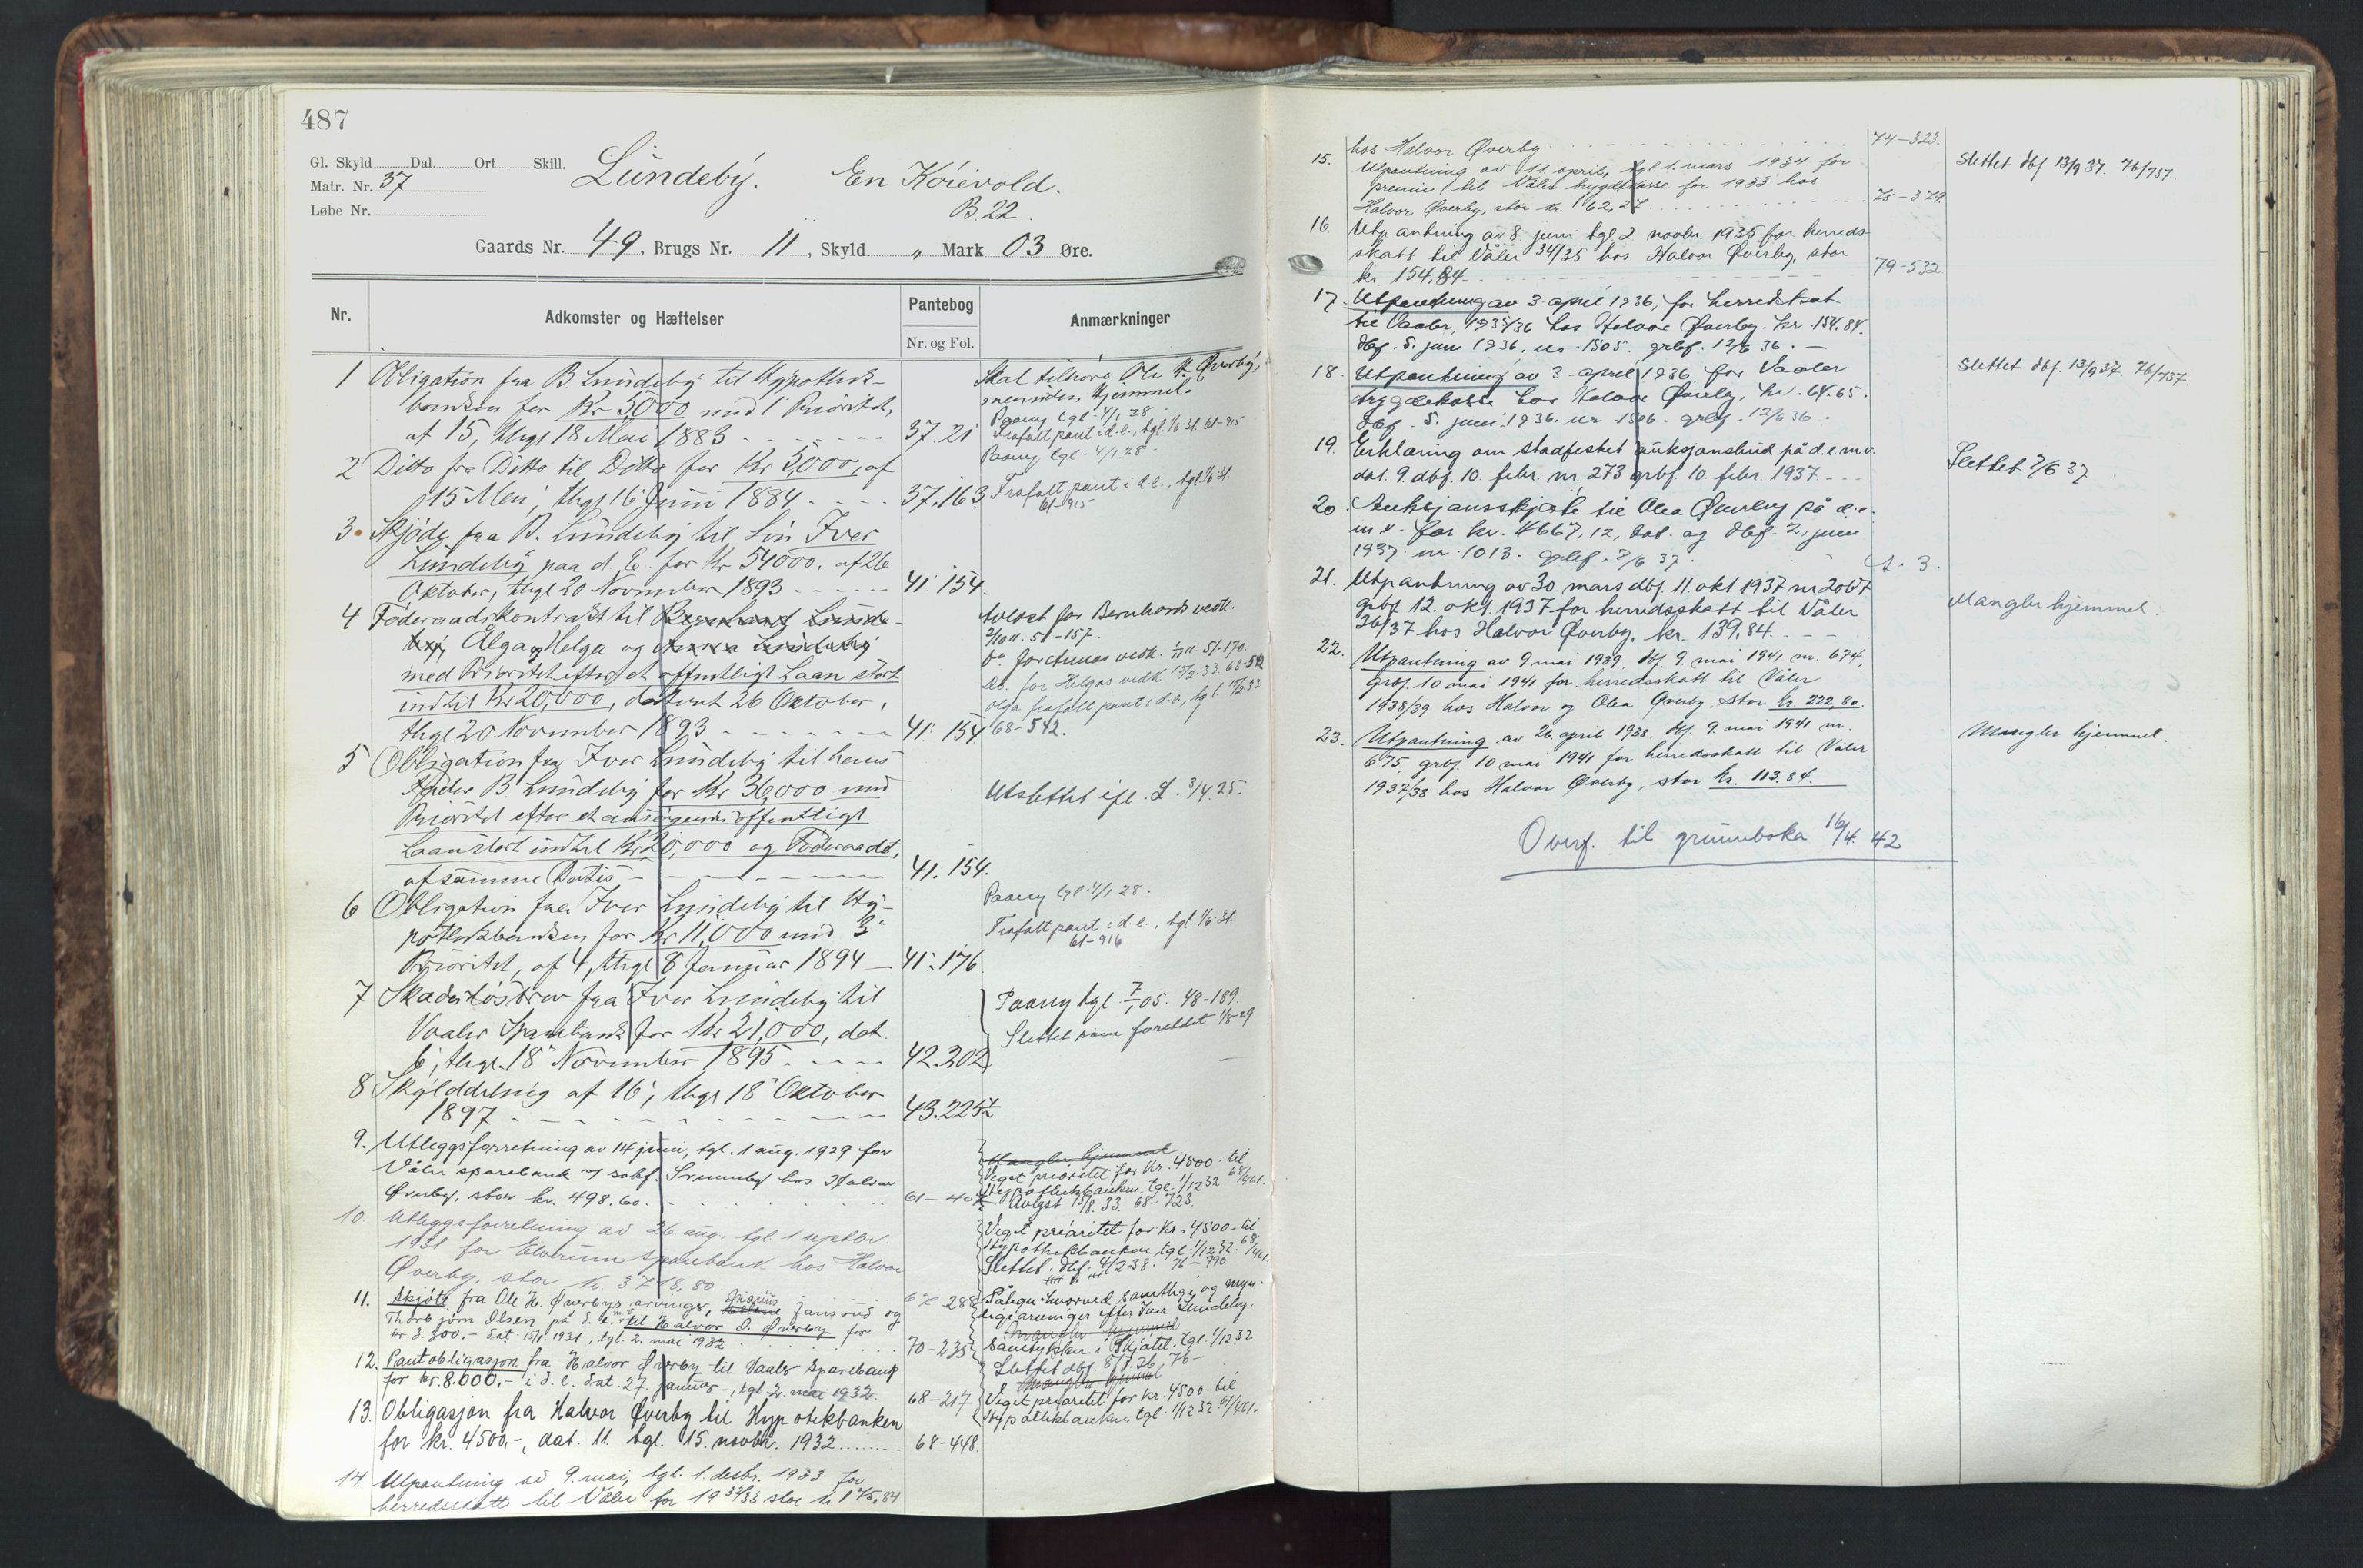 487
Gl. Skyld Dal. Ort Skill.
Matr. Nr. 37
Løbe Nr.
Lundeby. En Koievold.
B. 22.
Gaards Nr. 49, Brugs Nr. 11, Skyld " Mark 03 Øre.
Nr. Adkomster og Hæftelser Pantebog Anmærkninger
Nr. og Fol.
1 Obligation fra B. Lundeby til Hypothek-
banken for Kr 5000 med 1 Prioritet,
af 15, thgl 18 Mai 1883 37. 21
Skal tilhøre Ole H. Øverby,
men uten hjemmel.
Paany tgl. 4/1 28.
Frafalt pant i d.e., tgl. 1/6 31. 61-915
2 Ditto fra Ditto til Ditto for Kr 5,000, af
15 Mai, thgl 16 Juni 1884 37. 163
Paany tgl. 4/1 28.
Frafalt pant i d.e., tgl. 1/6 31.
61-915
3 Skjöde fra B. Lundeby til Sön Iver
Lundeby paa d. E. for Kr 54000. af 26
Oktober, thgl 20 November 1893 41: 154.
4 Föderaadskontrakt til Bernhard Lunde-
by, Olga og Helga og Anna Lundeby
med Prioritet efter et offentligt Laan stort
indtil Kr 20,000, dateret 26 Oktober,
thgl 20 November 1893 41: 154
Avlöst for Bernhards vedk.
2/10 11. 51-157.
Do. for Annas vedk. 51-170.
Do. for Helgas vedk. 15/2. 33. 68-542
Olga frafalt pant i d.e., tgl. 15/2 33.
68-542.
5 Obligation fra Iver Lundeby til hans
Fader B Lundeby for Kr 36,000 med
Prioritet efter et offentligt
Laan stort indtil Kr 20,000 og Föderaadet,
af samme Datis 41: 154.
Utslettet ifl. L. 3/4. 25.
6 Obligation fra Iver Lundeby til Hy-
pothekbanken for Kr 11,000 med 3"
Prioritet, af 4, thgl 8 Januar 1894 41: 176
Paany tgl. 4/1 28.
Frafalt pant i d.e., tgl. 1/6 31.
61-916
7 Skadeslösbrev fra Iver Lundeby til
Vaaler Sparebank for Kr 21,000, dat
6, thgl. 18 November 1895. 42. 302
Paany tgl. 7/1 05. 48-189.
Slettet som foreldet 1/8-29
8 Skylddeling af 16, thgl 18 Oktober
1897 43. 225
9. Utleggsforretning av 14 juni, tgl. 1 aug. 1929 for
Våler sparebank v/ sakf. hos Halvor
Øverby, stor kr. 498.60. 61-
Mangler hjemmel
Veget prioritet for Kr. 4500.- til
Hypotekbanken tgl. 1/12 32 68/461.
Avlyst 15/8. 33. 68-723.
10. Utleggsforretning av 26 aug. tgl 1 septbr.
1931 for Elverum sparebank hos Halvor
Øverby, stor kr. 3718,80 67-288
Veget prioritet for kr. 4500.- til
Hypothekbanken, tgl. 1/12 32. 68/461.
Slettet. dbf. 4/2 38. 76-790
11. Skjöte fra Ole H. Øverbys arvinger, Marius Jansrud og
Thorbjörn Olsen på d.e. m.v. til Halvor O. Øverby for
kr. 3.300.- Dat. 1931, tgl. 2. mai 1932 70-235
Påtegn. hvorved samtlige og myn-
dige arvinger efter Iver Lundeby
Mangler hjemmel
samtykker i skjötet. tgl. 1/12 32
12. Pantobligasjon fra Halvor Øverby til Vaaler Sparebank
for kr. 8.000,- i d.e. Dat. 27. januar, tgl. 2. mai 1932. 68-217
Slettet dbf. 8/8. 36, 76-
Mangler hjemmel
Veget prioritet for kr. 4500.- til
Hypotekbanken tgl. 1/12 32. 68/461.
13. Obligasjon fra Halvor Øverby til Hypotekbanken
for kr. 4500,-, dat. 11. tgl. 15. novbr. 1932 68-448.
14. Utpantning av 9. mai, tgl. 1. desbr. 1933 for
herredsskatt til Våler for 1932/33 stor kr. 175,84
hos Halvor Øverby 74-323.
15. Utpantning av 11. april, tgl. 1. mars 1934 for
premie til Våler trygdekasse for 1933 hos
Halvor Øverby, stor kr. 62,27 75-379.
Slettet dbf 13/9 37. 76/757.
16. Utpantning av 8. juni tgl 2 novbr 1935 for herreds-
skatt til Våler 34/35 hos Halvor Øverby, stor
kr. 154,84 79-532
17. Utpantning av 3 april 1936, for herredskat
til Vaaler, 1935/36 hos Halvor Øverby. kr. 154.84.
Dbf. 5. juni 1936, nr. 1505. grbf. 12/6 36.
18. Utpantning av 3 april 1936 for Vaaler
trygdekasse hos Halvor Øverby, kr. 64.65.
Dbf. 5. juni 1936. nr. 1506. grbf. 12/6 36.
Slettet dbf. 13/9 37. 76/757.
19. Erklæring om stadfestet auksjonsbud på d.e.m.v.
dat. 9. dbf. 10. febr. nr. 273 grbf. 10. febr. 1937.
Slettet 7/6 37
20. Auksjonsskjøte til Olea Øverby på d.e.
m.v. for kr. 4667,12, Dat. og Dbf. 2, juni
1937. nr. 1013. grbf. 7/6 37. A. 3.
21. Utpantning av 30. mars dbf. 11. okt 1937 nr 2067
grbf. 12. okt. 1937 for herredsskatt til Våler
36/37 hos Halvor Øverby, kr. 139,84.
Mangler hjemmel.
22. Utpantning av 9 mai 1939. dbf. 9. mai 1941 nr. 674,
grbf. 10 mai 1941 for herredsskatt til Våler
1938/39 hos Halvor og Olea Øverby, stor kr. 222,80.
23. Utpantning av 26. april 1938. dbf. 9. mai 1941 nr.
675, grbf. 10 mai 1941 for herredsskatt til Våler
1937/38 hos Halvor Øverby, stor kr. 113.84.
Mangler hjemmel.
Overf. til grunnboka 16/4. 42